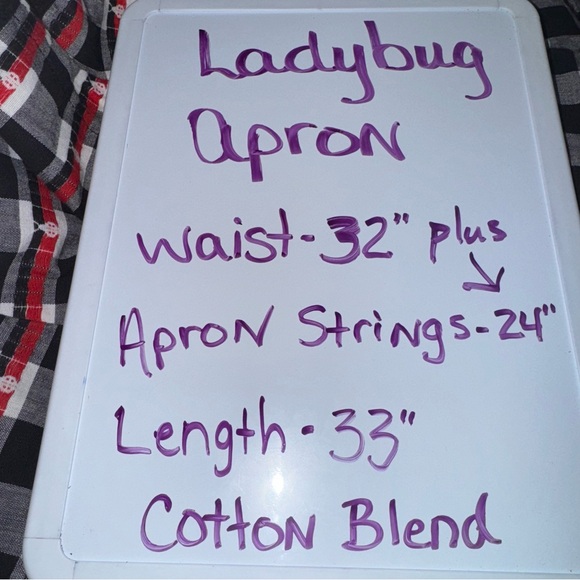 Ladybug
Apron
Waist-32" plus
↓
Apron Strings-24"
Length-33"
Cotton Blend